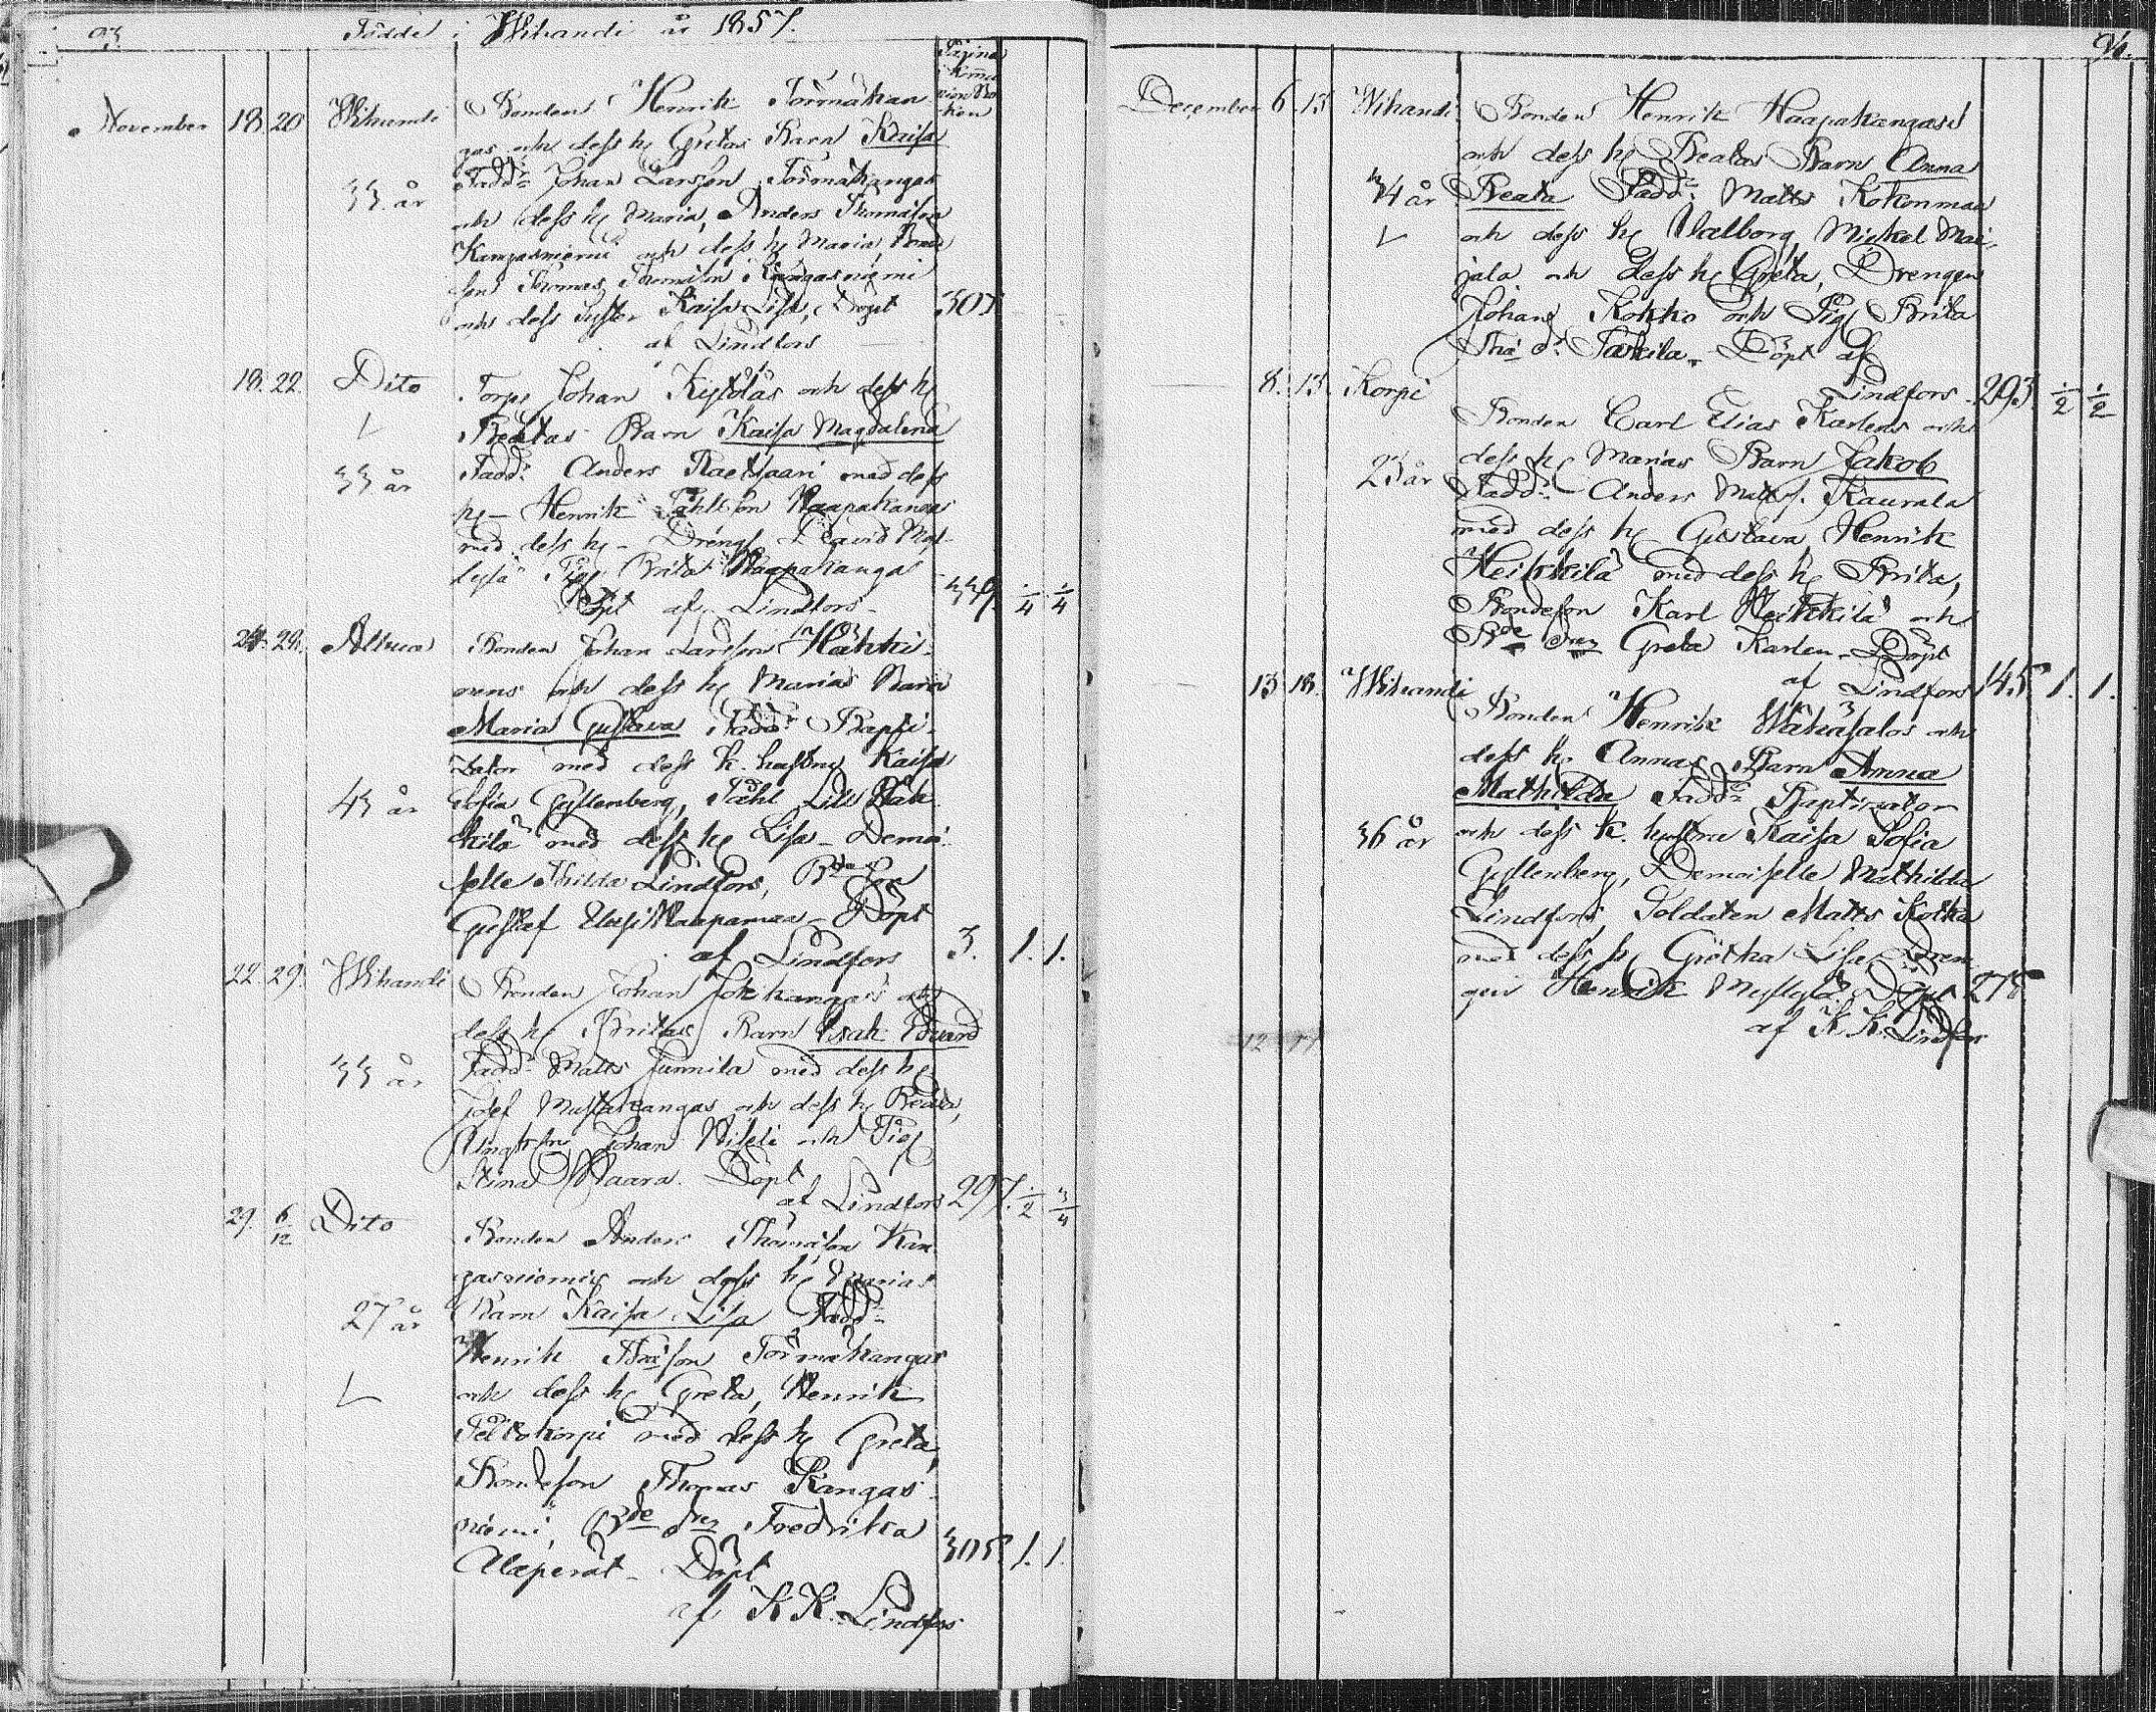 93. Födde i Wihandi år 1857.
Pagina i Kommunion Boken
November 18. 20 Wihandi Bonden Henrik Törmäkan-
gas och dess h. Gretas Barn Kaisa
Fadd: Johan Larsson Törmäkangas
33 år
och dess h. Maria, Anders Thomasson
Kangasniemi och dess h. Maria, Bonde
son Thomas Thomason Kangasniemi
och dess Syster Kaisa Lisa, Döpt 305
af Lindfors
18. 22. Dito Torp. Johan Kylöläs och dess h.
Beatas Barn Kaisa Magdalena
33 år Fadd: Anders Raetsaari med dess
h. Henrik Påhlsson Haapakangas
med dess h. Dreng. David
Pig. Brita Haapakangas
Döpt af Lindfors 339. 1/4 1/4
24. 29. Alhua Bonden Johan Larsson Häkki-
nens och dess h. Marias Barn
Maria Gustava Fadd: Bapti-
zator med dess k. hustru Kaisa
43 år Sofia Gyllenberg, Påhl Lill
kilä med dess h. Lisa Demoi-
selle Hilda Lindfors, Bde Son
Gustaf Haapamaa Döpt
af Lindfors 3. 1. 1.
22. 29. Wihandi Bonden Johan Jokikangas och
dess h. Britas Barn Isak Edvard
33 år Fadd: Matts Junnila med dess h.
Josef Mustakangas och dess h. Beata,
Johan och Pig.
Stina Waara. Döpt
af Lindfors 297. 1/2 3/4
29. 6/12 Dito Bonden Anders Thomason Kan
gasniemis och dess h. Marias
27 år Barn Kaisa Lisa Fadd:
Henrik Törmäkangas
och dess h. Greta, Henrik
Peltokorpi med dess h. Greta,
Bondeson Thomas Kangas
niemi, Bde dr Fredrika
Alaperät Döpt 305. 1. 1.
af K K. Lindfors
94.
December 6. 13. Wihandi Bonden Henrik Haapakangass
och dess h. Beatas Barn Anna
34 år Beata Fadd: Matts Kokonmaa
och dess h. Walborg, Mickel Mai-
jala och dess h. Greta, Drengen
Johan Kokko och Pig. Brita
Döpt af
Lindfors 293. 1/2 1/2
8. 13. Korpi Bonden Carl Elias Karlens och
dess h. Marias Barn Jakob
23 år Fadd: Anders Matts. Kaurala
med dess h. Gustava Henrik
Heikkilä med dess h. Brita,
Bondeson Karl Heikkilä och
Bde dr Greta Karlen Döpt
af Lindfors 145. 1. 1.
13. 18. Wihandi Bonden Henrik Wähäsalos och
dess h. Annas Barn Anna
Mathilda Fadd: Baptizator
36 år och dess K. hustru Kaisa Sofia
Gyllenberg, Demoiselle Mathilda
Lindfors, Soldaten Matts Kotka
med dess h. Gretha Lisa Dren
gen Henrik Döpt 275
af K K. Lindfors